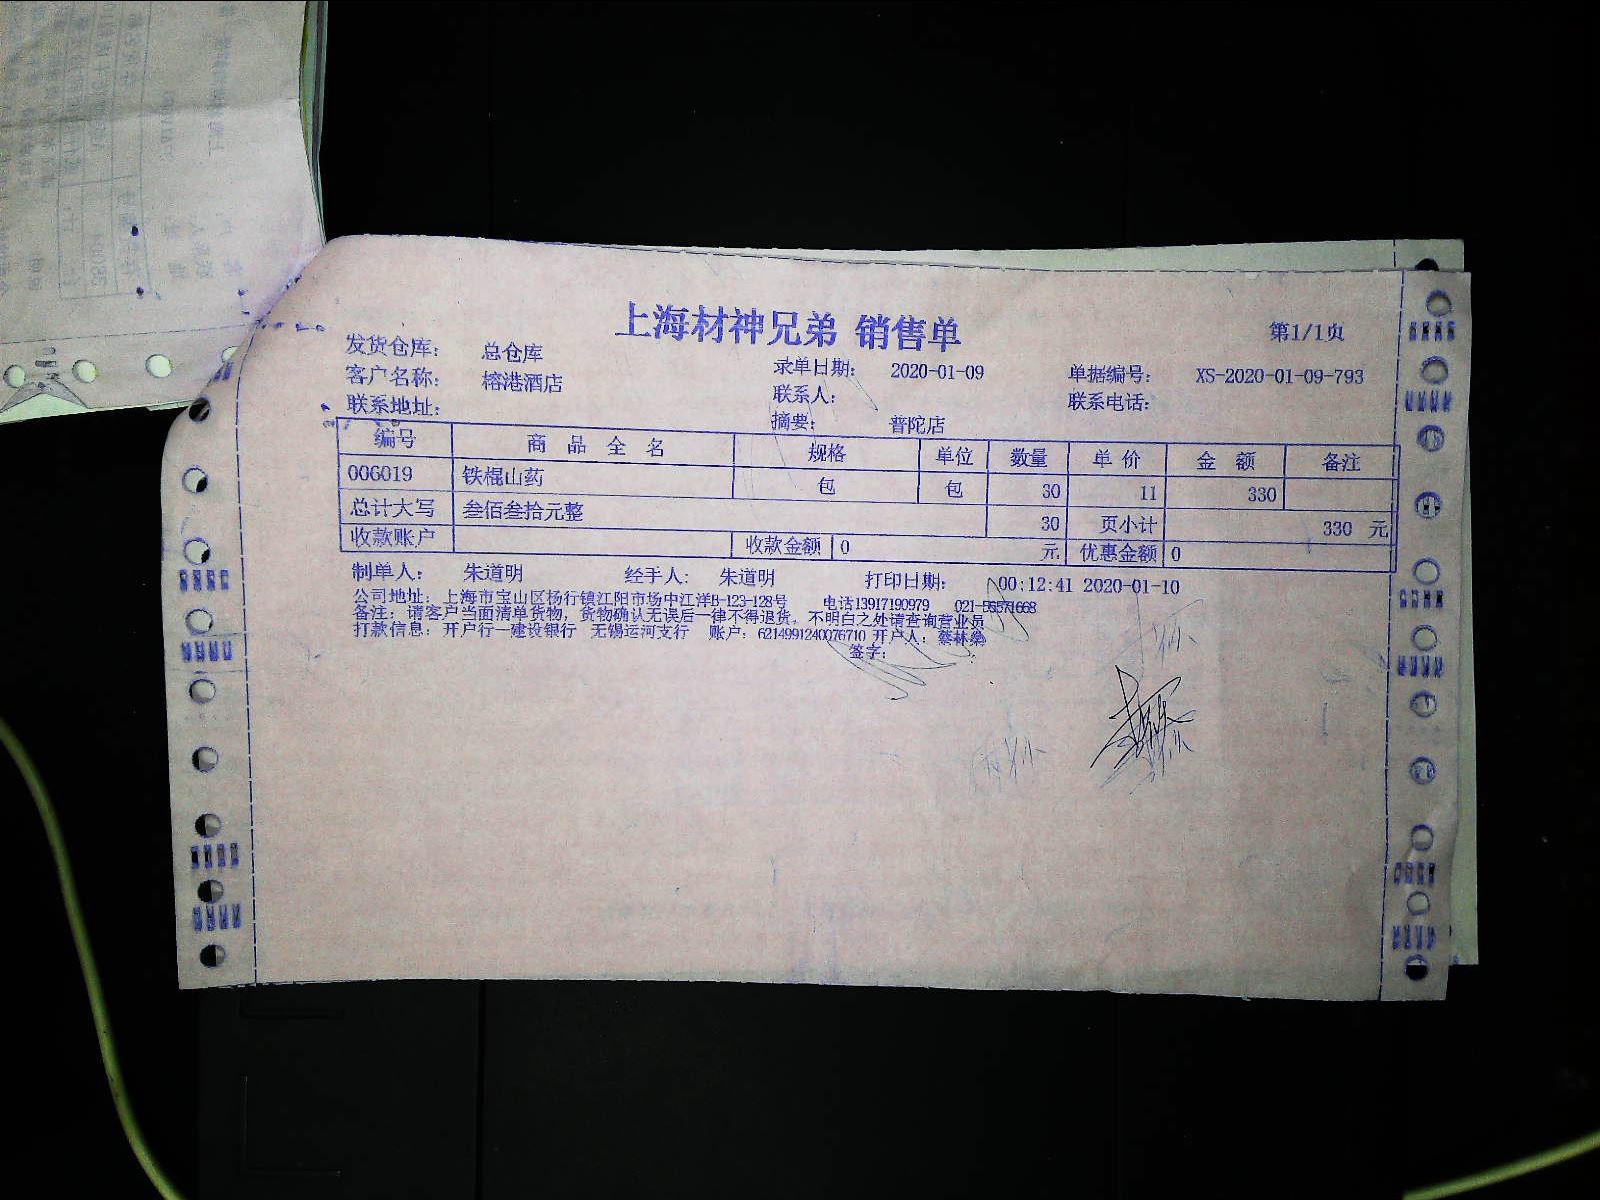 上海材神兄弟 销售单
第1/1页
发货仓库： 总仓库
录单日期： 2020-01-09 单据编号： XS-2020-01-09-793
客户名称： 榕港酒店
联系人： 联系电话：
联系地址：
摘要： 普陀店
编号 商品全名 规格 单位 数量 单价 金额 备注
006019 铁棍山药 包 包 30 11 330
总计大写 叁佰叁拾元整 30 页小计 330 元
收款账户 收款金额 0 元 优惠金额 0
制单人： 朱道明 经手人： 朱道明 打印日期： 00:12:41 2020-01-10
公司地址：上海市宝山区杨行镇江阳市场中江洋B-123-128号 电话13917190979 021-56571668
备注：请客户当面清单货物，货物确认无误后一律不得退货。不明白之处请查询营业员
打款信息：开户行一建设银行 无锡运河支行 账户：6214991240076710 开户人：蔡林
签字：